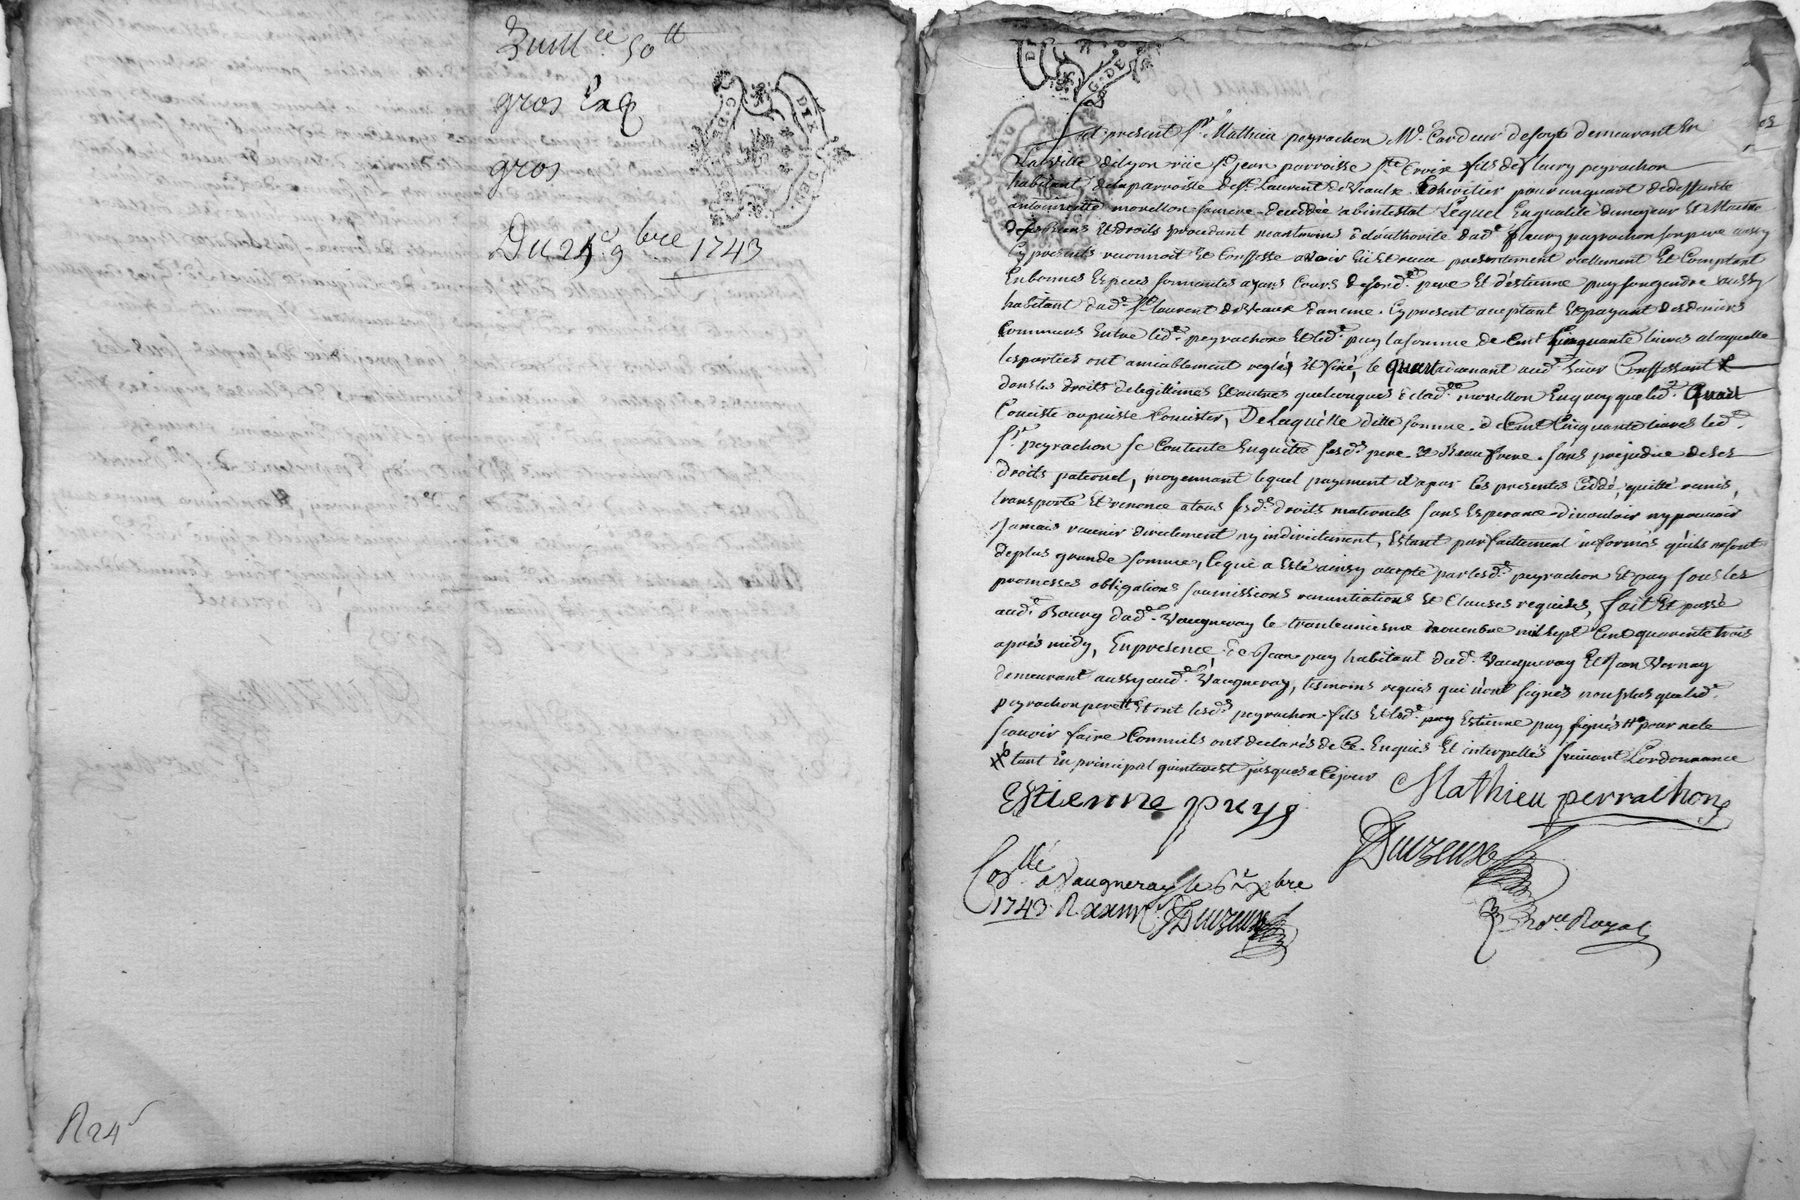 50ᵗᵗ
gros Exp
gros
Du 25ᵉ 9bre 1743
R 24ˢ
fut présent Sr. Mathieu peyrachon Md. Cardeur de soye demeurant En
La ville de lyon rüe St jean parroisse Ste Croix fils de fleury peyrachon
habitant de la parroisse de St Laurent de Vaulx. heritier pour un quart de deffunte
antoinette morellon sa mere decedée abintestat Lequel En qualité de mageur Et Maitre
de ses biens Et droits procedant neantmoins de l'authorité dud. fleury peyrachon son pere aussy
Cy present reconnoit Et Confesse avoir Eü Et receu presentement réellement Et Comptant
En bonnes Especes sonnantes ayans Cours de sond. pere Et d'estienne puy son gendre aussy
habitant dud. St laurent de Vaux. Cy present acceptant Et payant des deniers
Communs Entre led. peyrachon Et led. puy la somme de Cent Cinquante livres a laquelle
les parties ont amiablement reglés Et fixé, le quart advenant aud. Sieur Confessant
dans les droits de legitimes Et autres quelconques de lad. morellon En quoy que led. quart
Consiste ou puisse Consister, De Laquelle ditte somme de Cent Cinquante livres led.
Sr. peyrachon se Contente En quitte sesd. pere Et Beau frere. sans prejudice de ses
droits paternel, moyennant lequel payement il a par Les presentes Cédé, quitté remis,
transporté Et renonce a tous sesd. droits maternels sans Esperance d'y vouloir ny pouvoir
Jamais revenir directement ny indirectement, Estant parfaitement informés qu'ils ne sont
de plus grande somme, Ce qui a Esté ainsy accepté par lesd. peyrachon Et puy sous les
promesses obligations soumissions renuntiations Et Clauses requises, fait Et passé
aud. Bourg dud. Vaugneray le trentieme novembre mil sept Cent quarente trois
après midy, En presence de Jean puy habitant dud. Vaugneray Et Jean Vernay
demeurant aussy aud. Vaugneray, tesmoins requis qui n'ont signés non plus que led.
peyrachon pere Et ont lesd. peyrachon fils Et led. puy Estienne puy signés pour ne le
sçavoir faire Comm'ils ont declarés de Ce Enquis Et interpellés suivant L'ordonnance
tant En principal qu'interest jusques a Ce jour
Estienne puy Mathieu perrachon
Duizeux
Collé a Vaugneray le 6e xbre
1743 R Duizeux
nore Royal